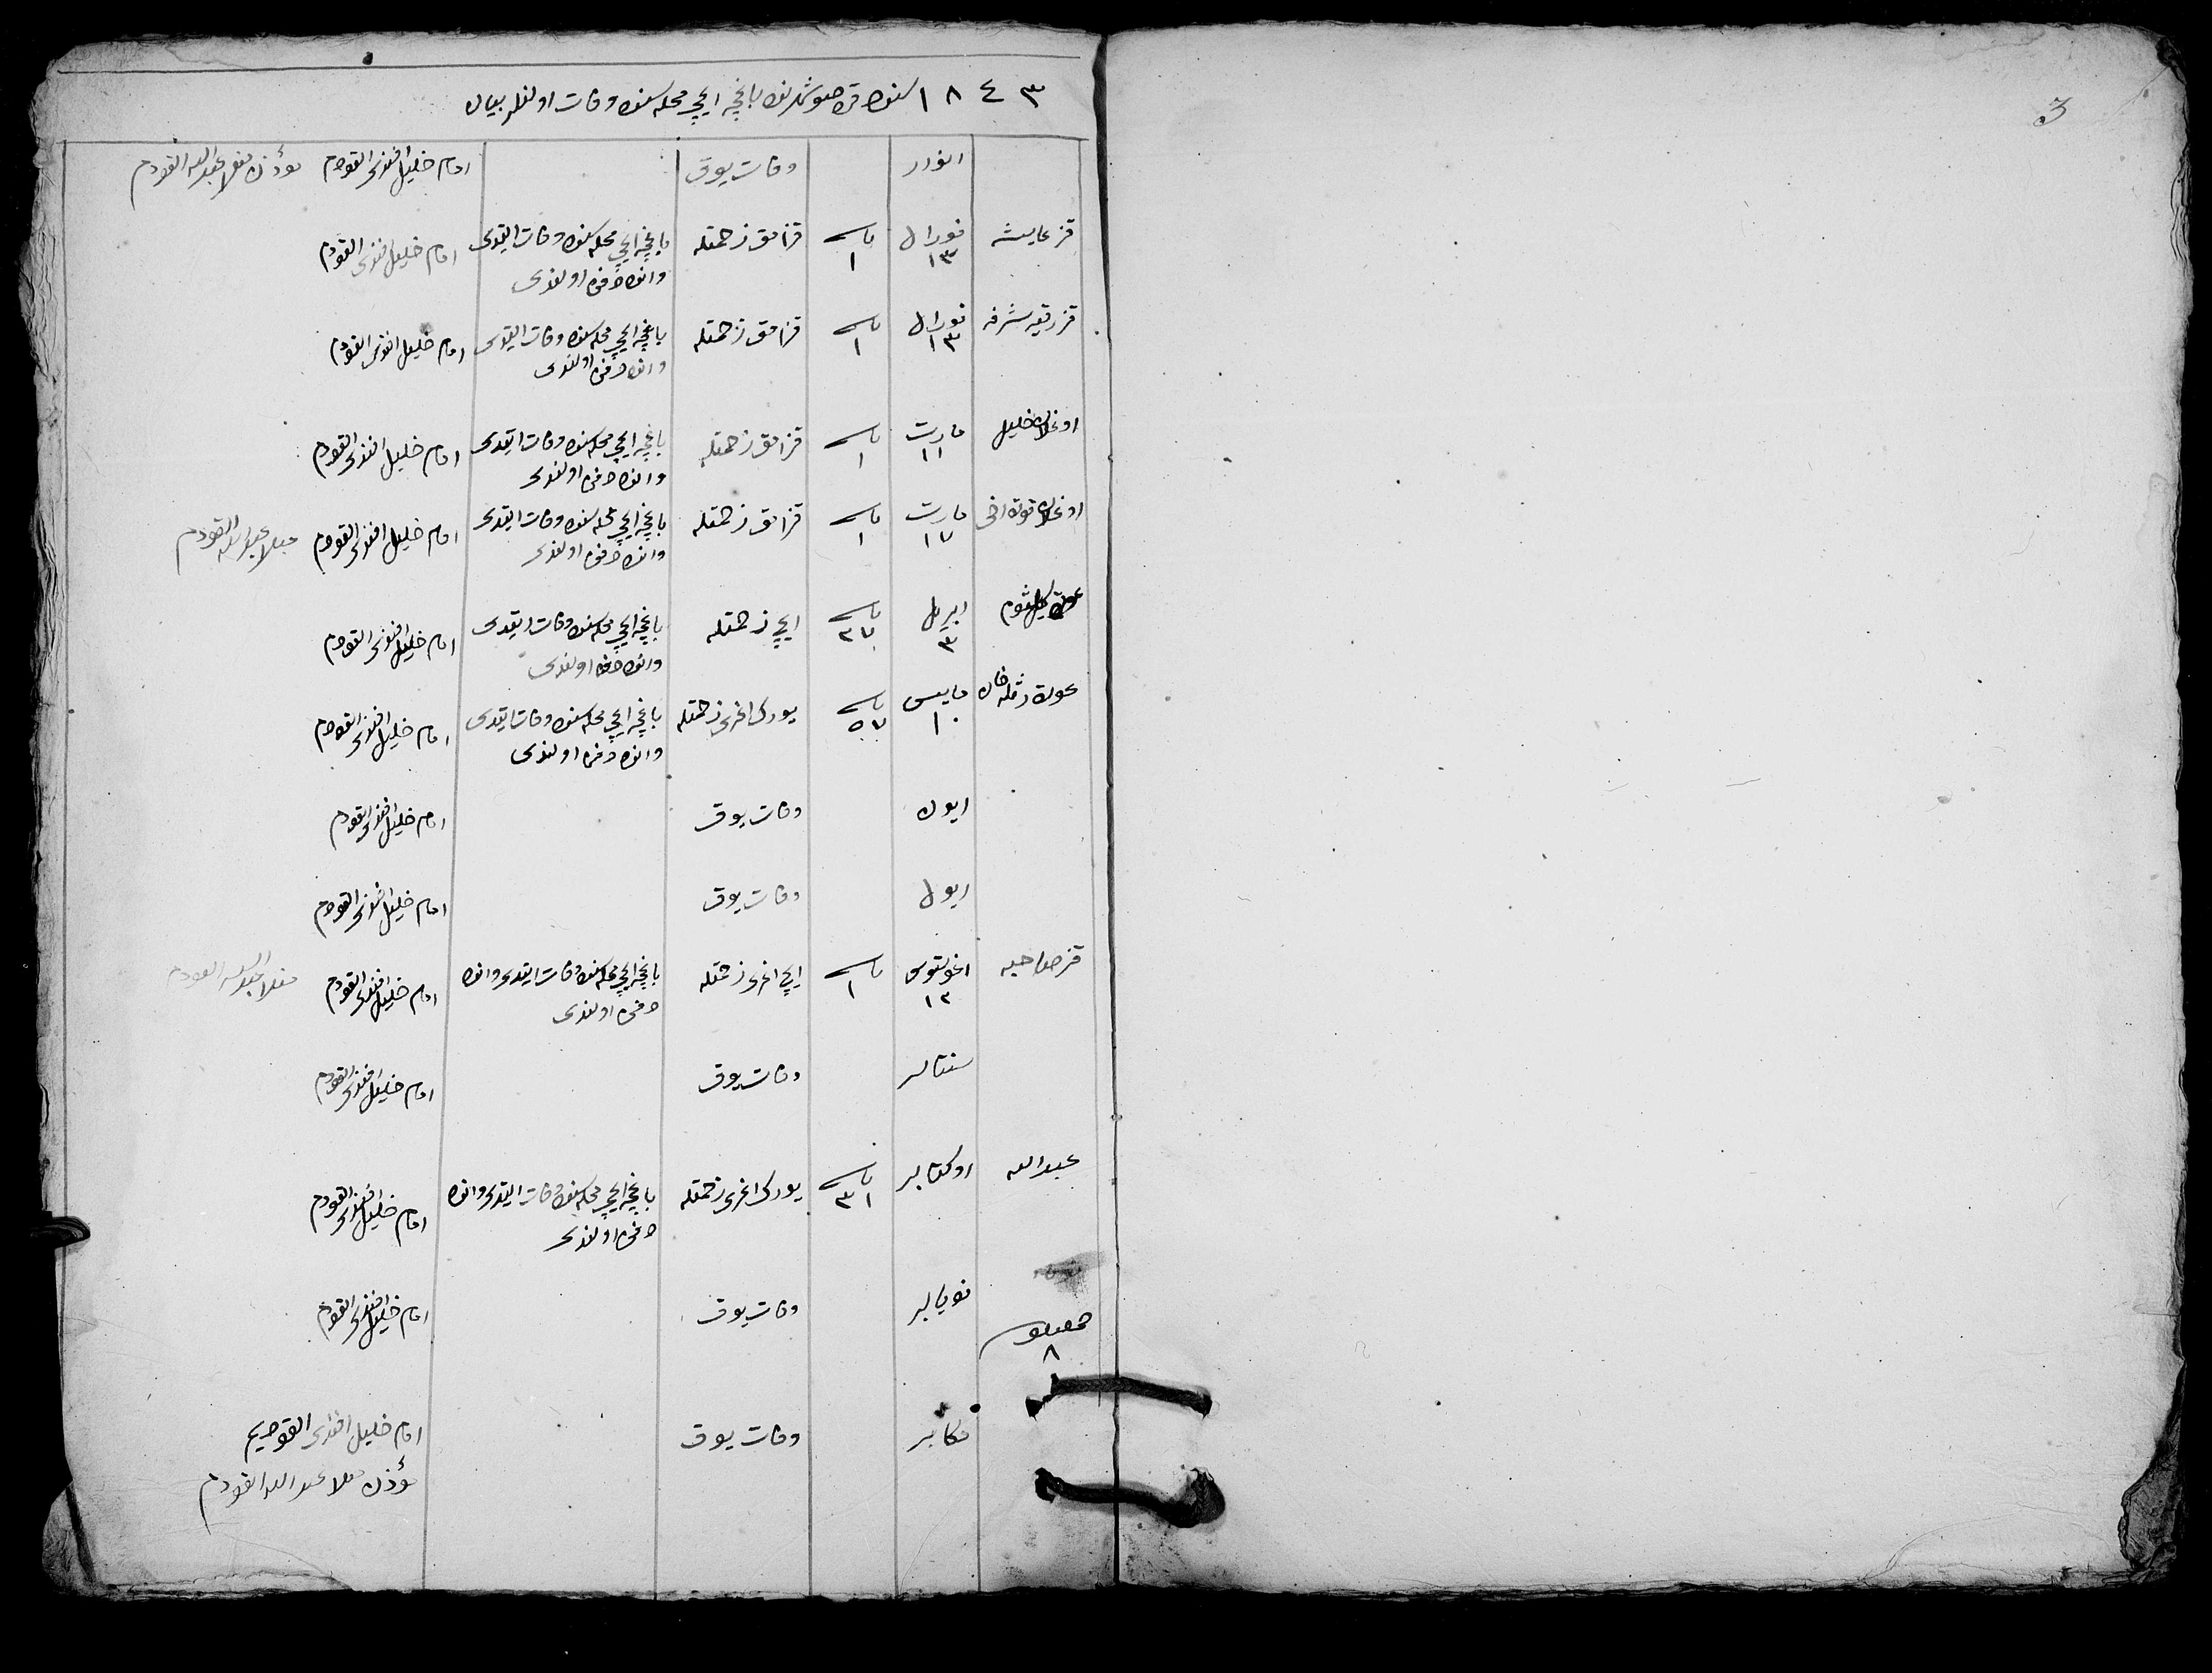 3
١٨٤٣ سنه‌ده قره‌صو شهرنده باغچه ایچی محله‌سنده وفات اولنلر بیان
انوار وفات یوق امام خلیل افندی القودم مؤذن منلا عبدالله القودم
قز عایشه فورال ١٣ یاشی ١ قزامق زحمتله باغچه ایچی محله‌سنده وفات ایتدی امام خلیل افندی القودم
وانده دفن اولندی
قز رقیه شرفه فورال ١٣ یاشی ١ قزامق زحمتله باغچه ایچی محله‌سنده وفات ایتدی امام خلیل افندی القودم
وانده دفن اولندی
اوغلان خلیل مارت ١١ یاشی ١ قزامق زحمتله باغچه ایچی محله‌سنده وفات ایتدی امام خلیل افندی القودم
وانده دفن اولندی
اوغلان مارت ١٧ یاشی ١ قزامق زحمتله باغچه ایچی محله‌سنده وفات ایتدی امام خلیل افندی القودم منلا عبدالله القودم
وانده دفن اولندی
عورت کلثوم اپریل ٣ یاشی ٢٧ ایچ زحمتله باغچه ایچی محله‌سنده وفات ایتدی امام خلیل افندی القودم
وانده دفن اولندی
عورت خان مایس ١٠ یاشی ٥٧ یورک اغری زحمتله باغچه ایچی محله‌سنده وفات ایتدی امام خلیل افندی القودم
وانده دفن اولندی
ایون وفات یوق امام خلیل افندی القودم
ایول وفات یوق امام خلیل افندی القودم
قز صاحبه اغوستوس ١٢ یاشی ١ ایچ اغری زحمتله باغچه ایچی محله‌سنده وفات ایتدی وانده امام خلیل افندی القودم منلا عبدالله القودم
دفن اولندی
سنتابر وفات یوق امام خلیل افندی القودم
عبدالله اوکتابر یاشی ٣١ یورک اغری زحمتله باغچه ایچی محله‌سنده وفات ایتدی وانده امام خلیل افندی القودم
دفن اولندی
نویابر وفات یوق امام خلیل افندی القودم
٨
دکابر وفات یوق امام خلیل افندی القودیم
مؤذن منلا عبدالله القودم